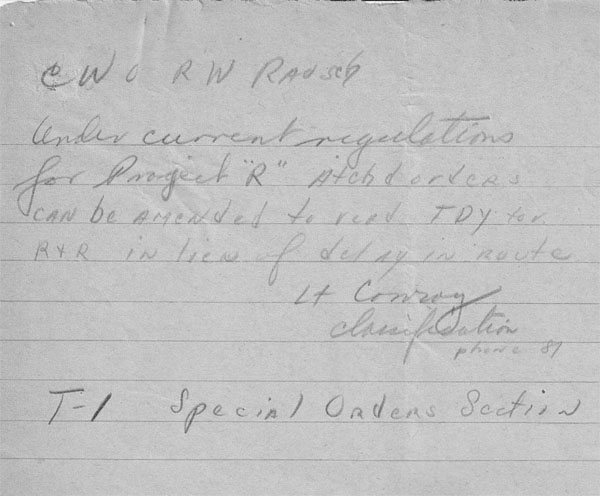 CWO RW Rausch
Under current regulations
for Project "R" Atchd orders
can be amended to read TDY for
R+R in lieu of delay in route
Lt Conroy
Classification
phone 81
T-1 Special Orders Section